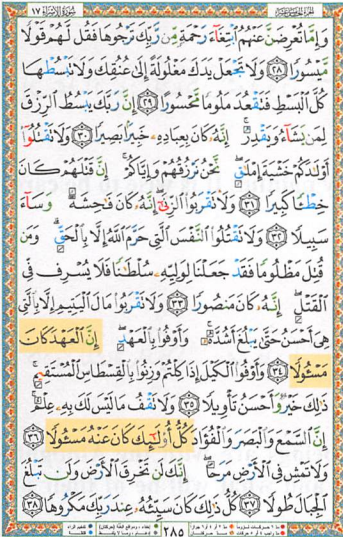 ١٧ سورة الإسراء الجزء الخامس عشر
وَإِمَّا تُعْرِضَنَّ عَنْهُمُ ٱبْتِغَآءَ رَحْمَةٍ مِّن رَّبِّكَ تَرْجُوهَا فَقُل لَّهُمْ قَوْلًا
مَّيْسُورًا ٢٨ وَلَا تَجْعَلْ يَدَكَ مَغْلُولَةً إِلَىٰ عُنُقِكَ وَلَا تَبْسُطْهَا
كُلَّ ٱلْبَسْطِ فَتَقْعُدَ مَلُومًا مَّحْسُورًا ٢٩ إِنَّ رَبَّكَ يَبْسُطُ ٱلرِّزْقَ
لِمَن يَشَآءُ وَيَقْدِرُ ۚ إِنَّهُۥ كَانَ بِعِبَادِهِۦ خَبِيرًۢا بَصِيرًا ٣٠ وَلَا تَقْتُلُوٓا۟
أَوْلَٰدَكُمْ خَشْيَةَ إِمْلَٰقٍ ۖ نَّحْنُ نَرْزُقُهُمْ وَإِيَّاكُمْ ۚ إِنَّ قَتْلَهُمْ كَانَ
خِطْـًٔا كَبِيرًا ٣١ وَلَا تَقْرَبُوا۟ ٱلزِّنَىٰٓ ۖ إِنَّهُۥ كَانَ فَٰحِشَةً وَسَآءَ
سَبِيلًا ٣٢ وَلَا تَقْتُلُوا۟ ٱلنَّفْسَ ٱلَّتِى حَرَّمَ ٱللَّهُ إِلَّا بِٱلْحَقِّ ۗ وَمَن
قُتِلَ مَظْلُومًا فَقَدْ جَعَلْنَا لِوَلِيِّهِۦ سُلْطَٰنًا فَلَا يُسْرِف فِّى
ٱلْقَتْلِ ۖ إِنَّهُۥ كَانَ مَنصُورًا ٣٣ وَلَا تَقْرَبُوا۟ مَالَ ٱلْيَتِيمِ إِلَّا بِٱلَّتِى
هِىَ أَحْسَنُ حَتَّىٰ يَبْلُغَ أَشُدَّهُۥ ۚ وَأَوْفُوا۟ بِٱلْعَهْدِ ۖ إِنَّ ٱلْعَهْدَ كَانَ
مَسْـُٔولًا ٣٤ وَأَوْفُوا۟ ٱلْكَيْلَ إِذَا كِلْتُمْ وَزِنُوا۟ بِٱلْقِسْطَاسِ ٱلْمُسْتَقِيمِ ۚ
ذَٰلِكَ خَيْرٌ وَأَحْسَنُ تَأْوِيلًا ٣٥ وَلَا تَقْفُ مَا لَيْسَ لَكَ بِهِۦ عِلْمٌ ۚ
إِنَّ ٱلسَّمْعَ وَٱلْبَصَرَ وَٱلْفُؤَادَ كُلُّ أُو۟لَٰٓئِكَ كَانَ عَنْهُ مَسْـُٔولًا ٣٦
وَلَا تَمْشِ فِى ٱلْأَرْضِ مَرَحًا ۖ إِنَّكَ لَن تَخْرِقَ ٱلْأَرْضَ وَلَن تَبْلُغَ
ٱلْجِبَالَ طُولًا ٣٧ كُلُّ ذَٰلِكَ كَانَ سَيِّئُهُۥ عِندَ رَبِّكَ مَكْرُوهًا ٣٨
٢٨٥